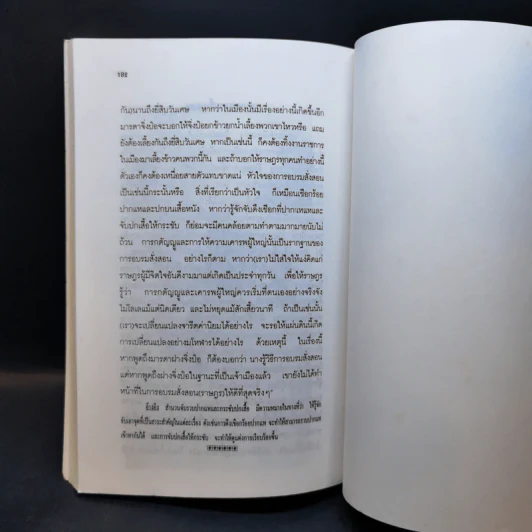 ๑๒๔
กันนานถึงยี่สิบวันเศษ หากว่าในเมืองนั้นมีเรื่องอย่างนี้เกิดขึ้นอีก
มารดาจึงป๋อจะบอกให้จึงป๋อยกข้าวยกน้ำเลี้ยงพวกเขาไหวหรือ แถม
ยังต้องเลี้ยงกันถึงยี่สิบวันเศษ หากเป็นเช่นนี้ ก็คงต้องทิ้งงานราชการ
ในเมืองมาเลี้ยงข้าวคนพวกนี้กัน และถ้าบอกให้ราษฎรทุกคนทำอย่างนี้
ตัวเองก็คงต้องเหนื่อยสายตัวแทบขาดแน่ หัวใจของการอบรมสั่งสอน
เป็นเช่นนี้กระนั้นหรือ สิ่งที่เรียกว่าเป็นหัวใจ ก็เหมือนเชือกร้อย
ปากแหและปกบนเสื้อหนัง หากว่ารู้จักจับดึงเชือกที่ปากแหและ
จับปกเสื้อให้กระชับ ก็ย่อมจะมีคนคล้อยตามทำตามมากมายนับไม่
ถ้วน การกตัญญูและการให้ความเคารพผู้ใหญ่นั้นเป็นรากฐานของ
การอบรมสั่งสอน อย่างไรก็ตาม หากว่า(เรา)ไม่ใส่ใจให้แง่คิดแก่
ราษฎรผู้มีจิตใจอันดีงามมาแต่เกิดเป็นประจำทุกวัน เพื่อให้ราษฎร
รู้ว่า การกตัญญูและเคารพผู้ใหญ่ควรเริ่มที่ตนเองอย่างจริงจัง
ไม่โลเลแม้แต่นิดเดียว และไม่หยุดแม้สักเสี้ยวนาที ถ้าเป็นเช่นนั้น
(เรา)จะเปลี่ยนแปลงจารีตค่านิยมได้อย่างไร จะรอให้แผ่นดินนี้เกิด
การเปลี่ยนแปลงอย่างมโหฬารได้อย่างไร ด้วยเหตุนี้ ในเรื่องนี้
หากพูดถึงมารดาฝางจึงป๋อ ก็ต้องบอกว่า นางรู้วิธีการอบรมสั่งสอน
แต่หากพูดถึงฝางจึงป๋อในฐานะที่เป็นเจ้าเมืองแล้ว เขายังไม่ได้ทำ
หน้าที่ในการอบรมสั่งสอน(ราษฎร)ให้ดีที่สุดจริงๆ"
สำนวนจับรวบปากแหและกระชับปกเสื้อ มีความหมายในทางที่ว่า ให้รู้จัก
จับเอาจุดที่เป็นสาระสำคัญในแต่ละเรื่อง ดังเช่นการดึงเชือกร้อยปากแห จะทำให้สามารถรวบปากแห
เข้าหากันได้ และการจับปกเสื้อให้กระชับ จะทำให้ดูแต่งกายเรียบร้อยขึ้น